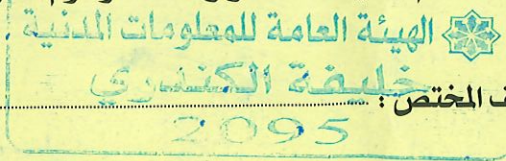 الهيئة العامة للمعلومات المدنية
خليفة الكندري
ف المختص :
2095